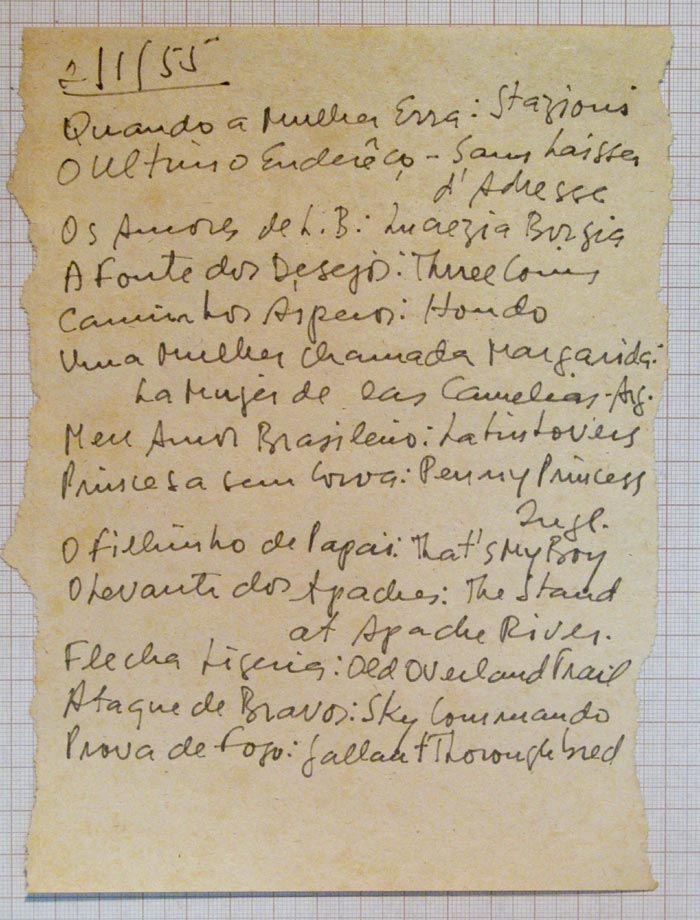 2/1/55
Quando a Mulher Erra: Stazioni
O Ultimo Enderêço - Sans Laisser
d'Adresse
Os Amores de L.B: Lucrezia Borgia
A Fonte dos Desejos: Three Coins
Caminhos Asperos: Hondo
Uma Mulher chamada Margarida:
La Mujer de las Camelias-Arg.
Meu Amor Brasileiro: Latin Lovers
Princesa sem Coroa: Penny Princess
Ingl.
O Filhinho de Papai: That's My Boy
O Levante dos Apaches: The Stand
at Apache River.
Flecha Ligeira: Old Overland Trail
Ataque de Bravos: Sky Commando
Prova de Fogo: Gallant Thoroughbred